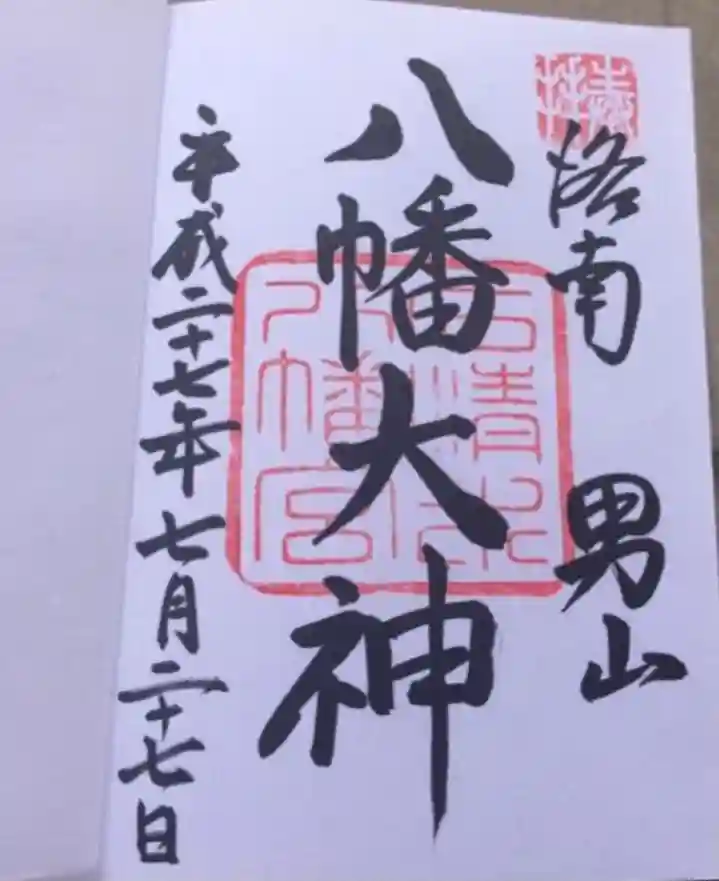 奉拝
洛南 男山
石清水
八幡宮
八幡大神
平成二十七年七月二十七日